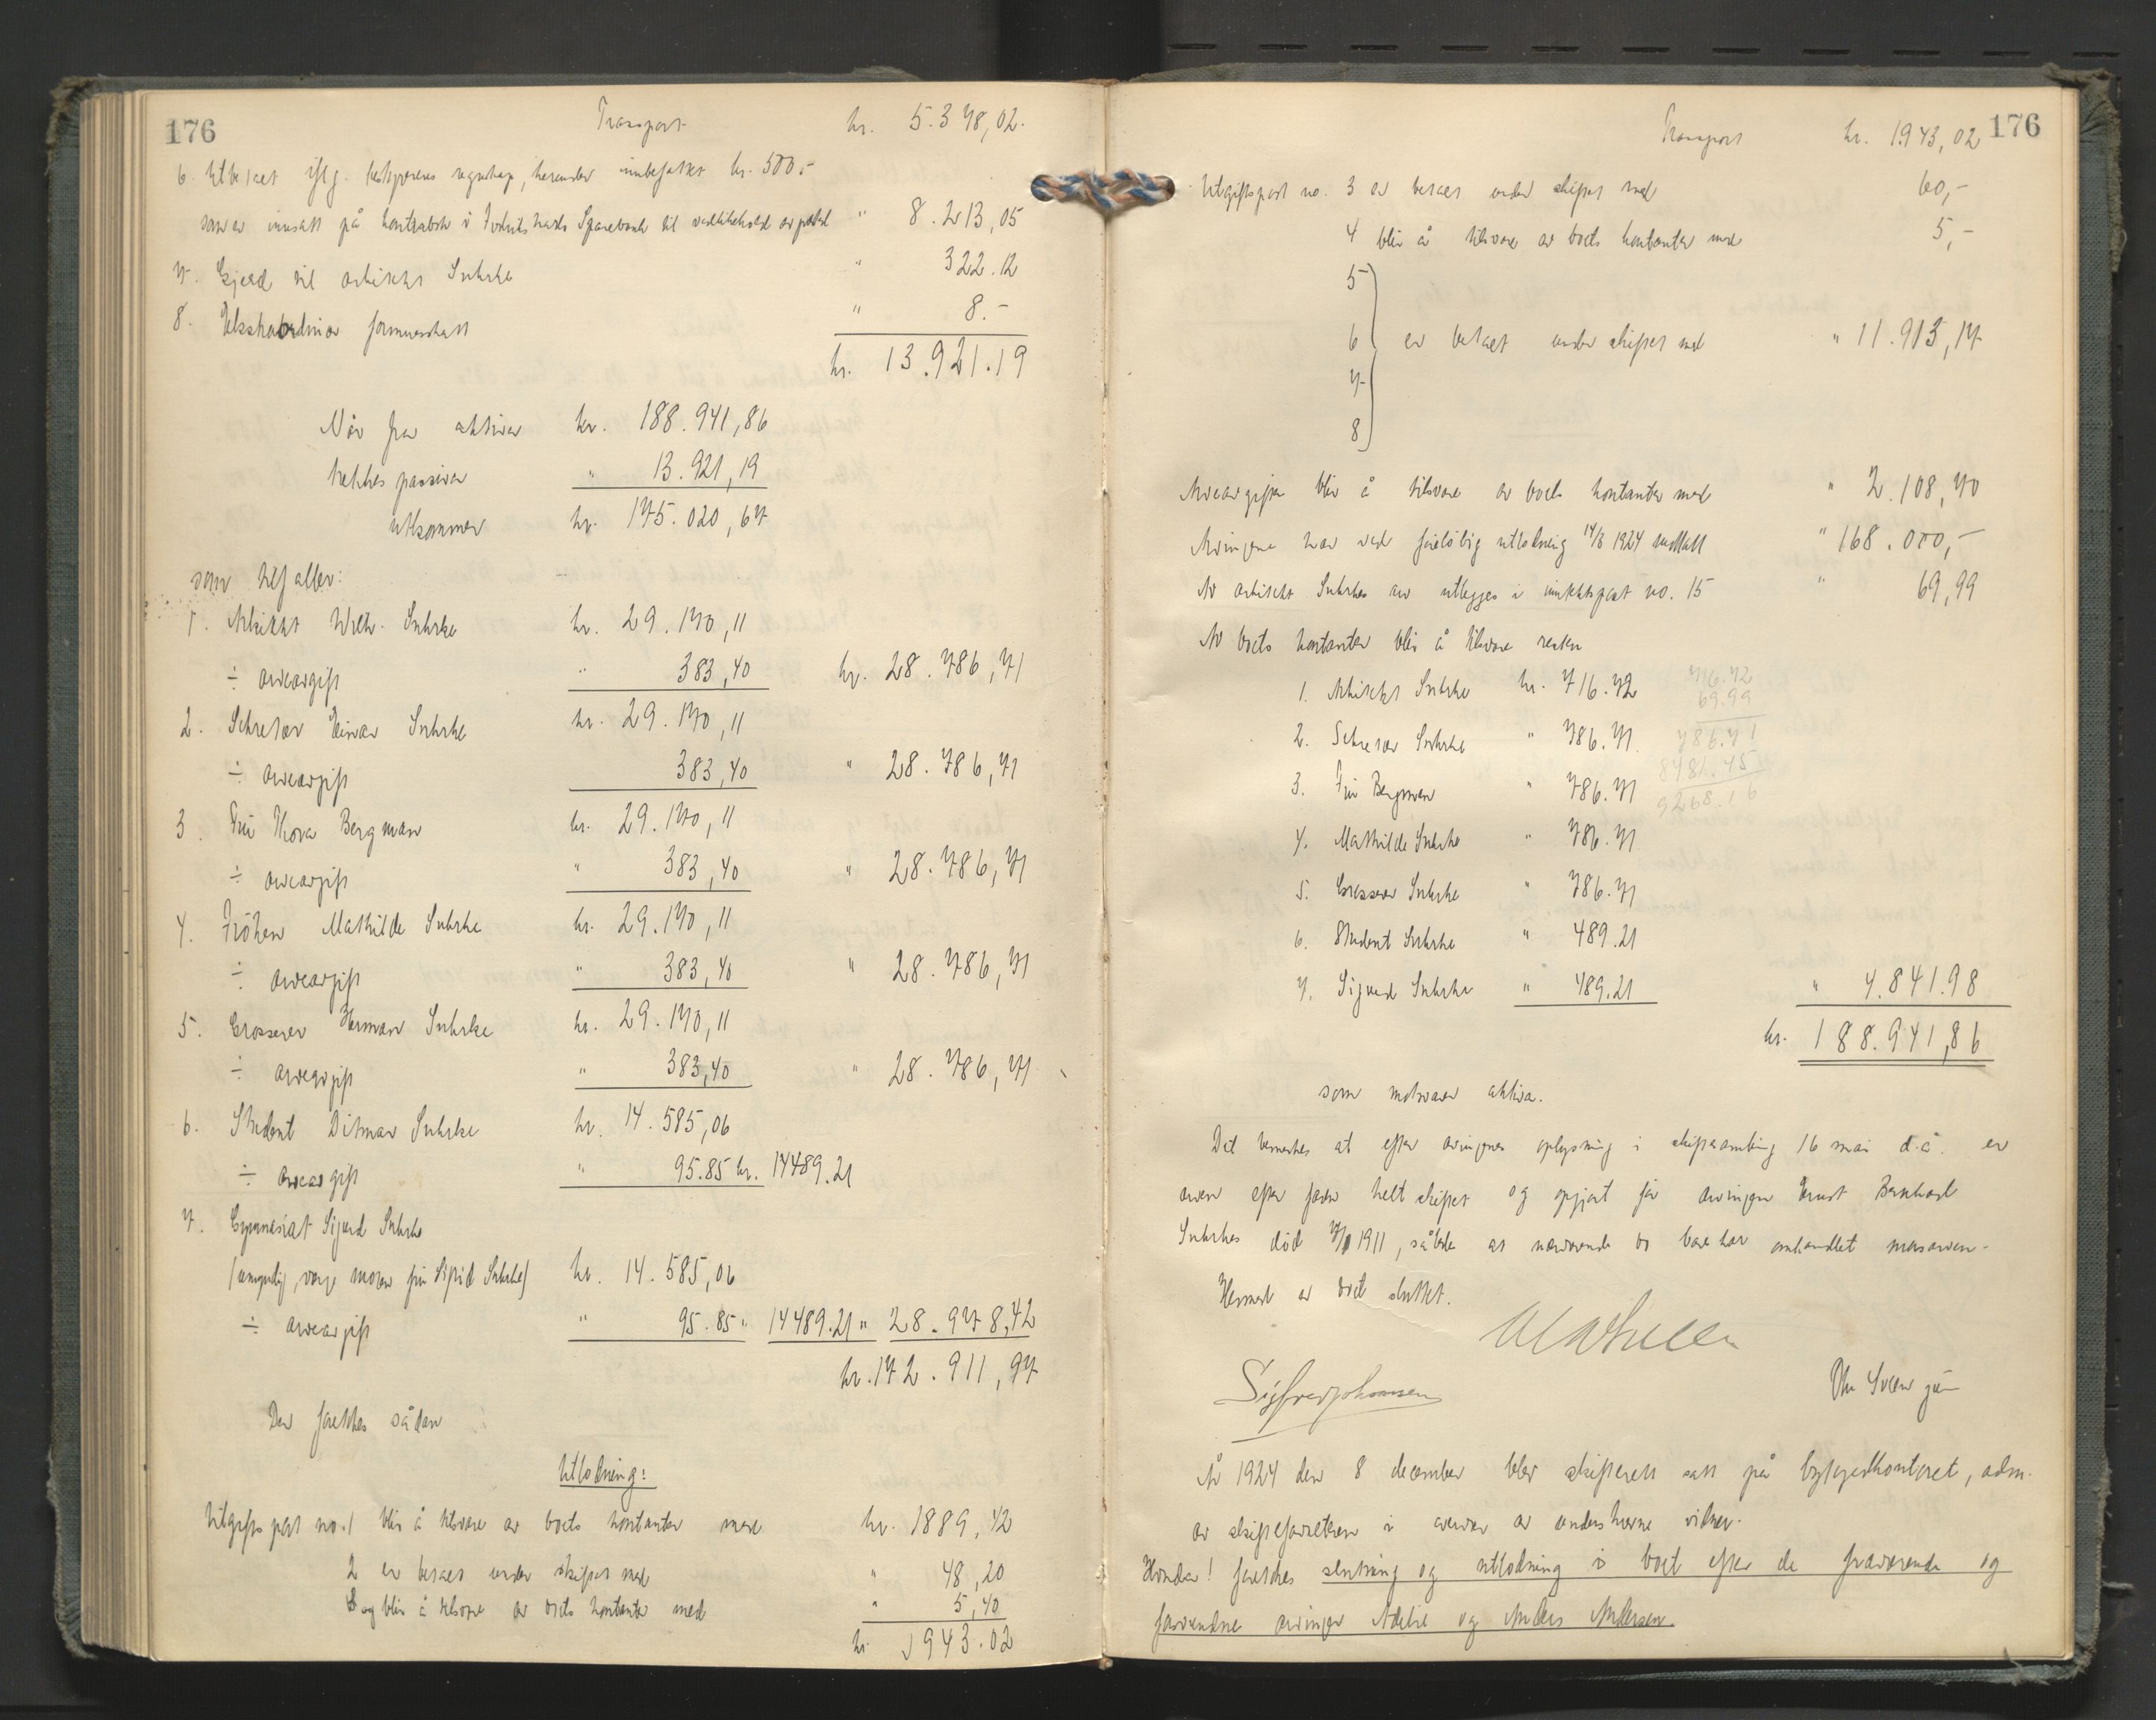 176
Transport kr. 5.378,02.
6. Utbetalt iflg. testspererens regnskap, herunder innbefattet kr. 500,-
som er innsatt på kontrabok i Sparebank til vedlikehold av gravsted " 8.213,05
7. Gjæld til arkitekt Suhrke " 322.12
8. Ekstraordinær formuesskatt " 8.-
kr. 13.921.19
Når fra aktiva kr. 188.941,86
trekkes passiva " 13.921,19
utkommer kr. 175.020,67
som tilfaller:
1. Arkitekt Wilh. Suhrke kr. 29.170,11
÷ arveavgift " 383,40 kr. 28.786,71
2. Sekretær Einar Suhrke kr. 29.170,11
÷ arveavgift 383,40 " 28.786,71
3. Fru Thora Bergman kr. 29.170,11
÷ arveavgift " 383,40 " 28.786,71
4. Frøken Mathilde Suhrke kr. 29.170,11
÷ arveavgift " 383,40 " 28.786,71
5. Grosserer Herman Suhrke kr. 29.170,11
÷ arveavgift " 383,40 " 28.786,71
6. Student Ditmar Suhrke kr. 14.585,06
÷ arveavgift " 95.85 kr. 14489.21
7. Gymnasiast Sigurd Suhrke
(umyndig, verge moren fru Sigrid Suhrke) kr. 14.585,06
÷ arveavgift " 95.85 " 14489.21 " 28.978,42
kr. 172.911,97
Der foretokes sådan
Utlodning:
Utgiftspost no. 1 blir å tilsvare av boets kontanter med kr. 1889,42
2 er betalt under skiftet med " 48,20
og blir å tilsvare av boets kontanter med " 5,40
kr. 1943.02
176
Transport kr. 1.943,02
Utgiftspost no. 3 er betalt under skiftet med 60,-
4 blir å tilsvare av boets kontanter med 5,-
5
6 er betalt under skiftet med " 11.913,17
7
8
Arveavgiften blir å tilsvare av boets kontanter med " 2.108,70
Arvingene har ved foreløbig utlodning 14/3 1924 mottatt " 168.000,-
Av arkitekt Suhrkes arv utlegges i inntektspost no. 15 " 69,99
Av boets kontanter blir å tilsvare resten
1. Arkitekt Suhrke kr. 716.72 716.72
69.99
2. Sekretær Suhrke " 786.71 786.71
8481.45
3. Fru Bergman " 786.71 9268.16
4. Mathilde Suhrke " 786.71
5. Grosserer Suhrke " 786.71
6. Student Suhrke " 489.21
7. Sigurd Suhrke " 489.21 " 4.841.98
kr. 188.941,86
som motsvarer aktiva.
Det bemerkes at efter arvingenes oplysning i skiftesamling 16 mai d.å. er
arven efter faren helt skiftet og opgjort før arvingen Ernst Bernhard
Suhrkes død 1911, således at nærværende bo bare har omhandlet morsarven.
Hermed er boet sluttet.
Sigfred Johansen
År 1924 den 8 december blev skifterett satt på byfogedkontoret, adm.
av skifteforvalteren i nærvær av undertegnede vidner.
Hvorda! foretokes slutning og utlodning i boet efter de fraværende og
forsvundne arvinger Adelie og Anders Andersen.